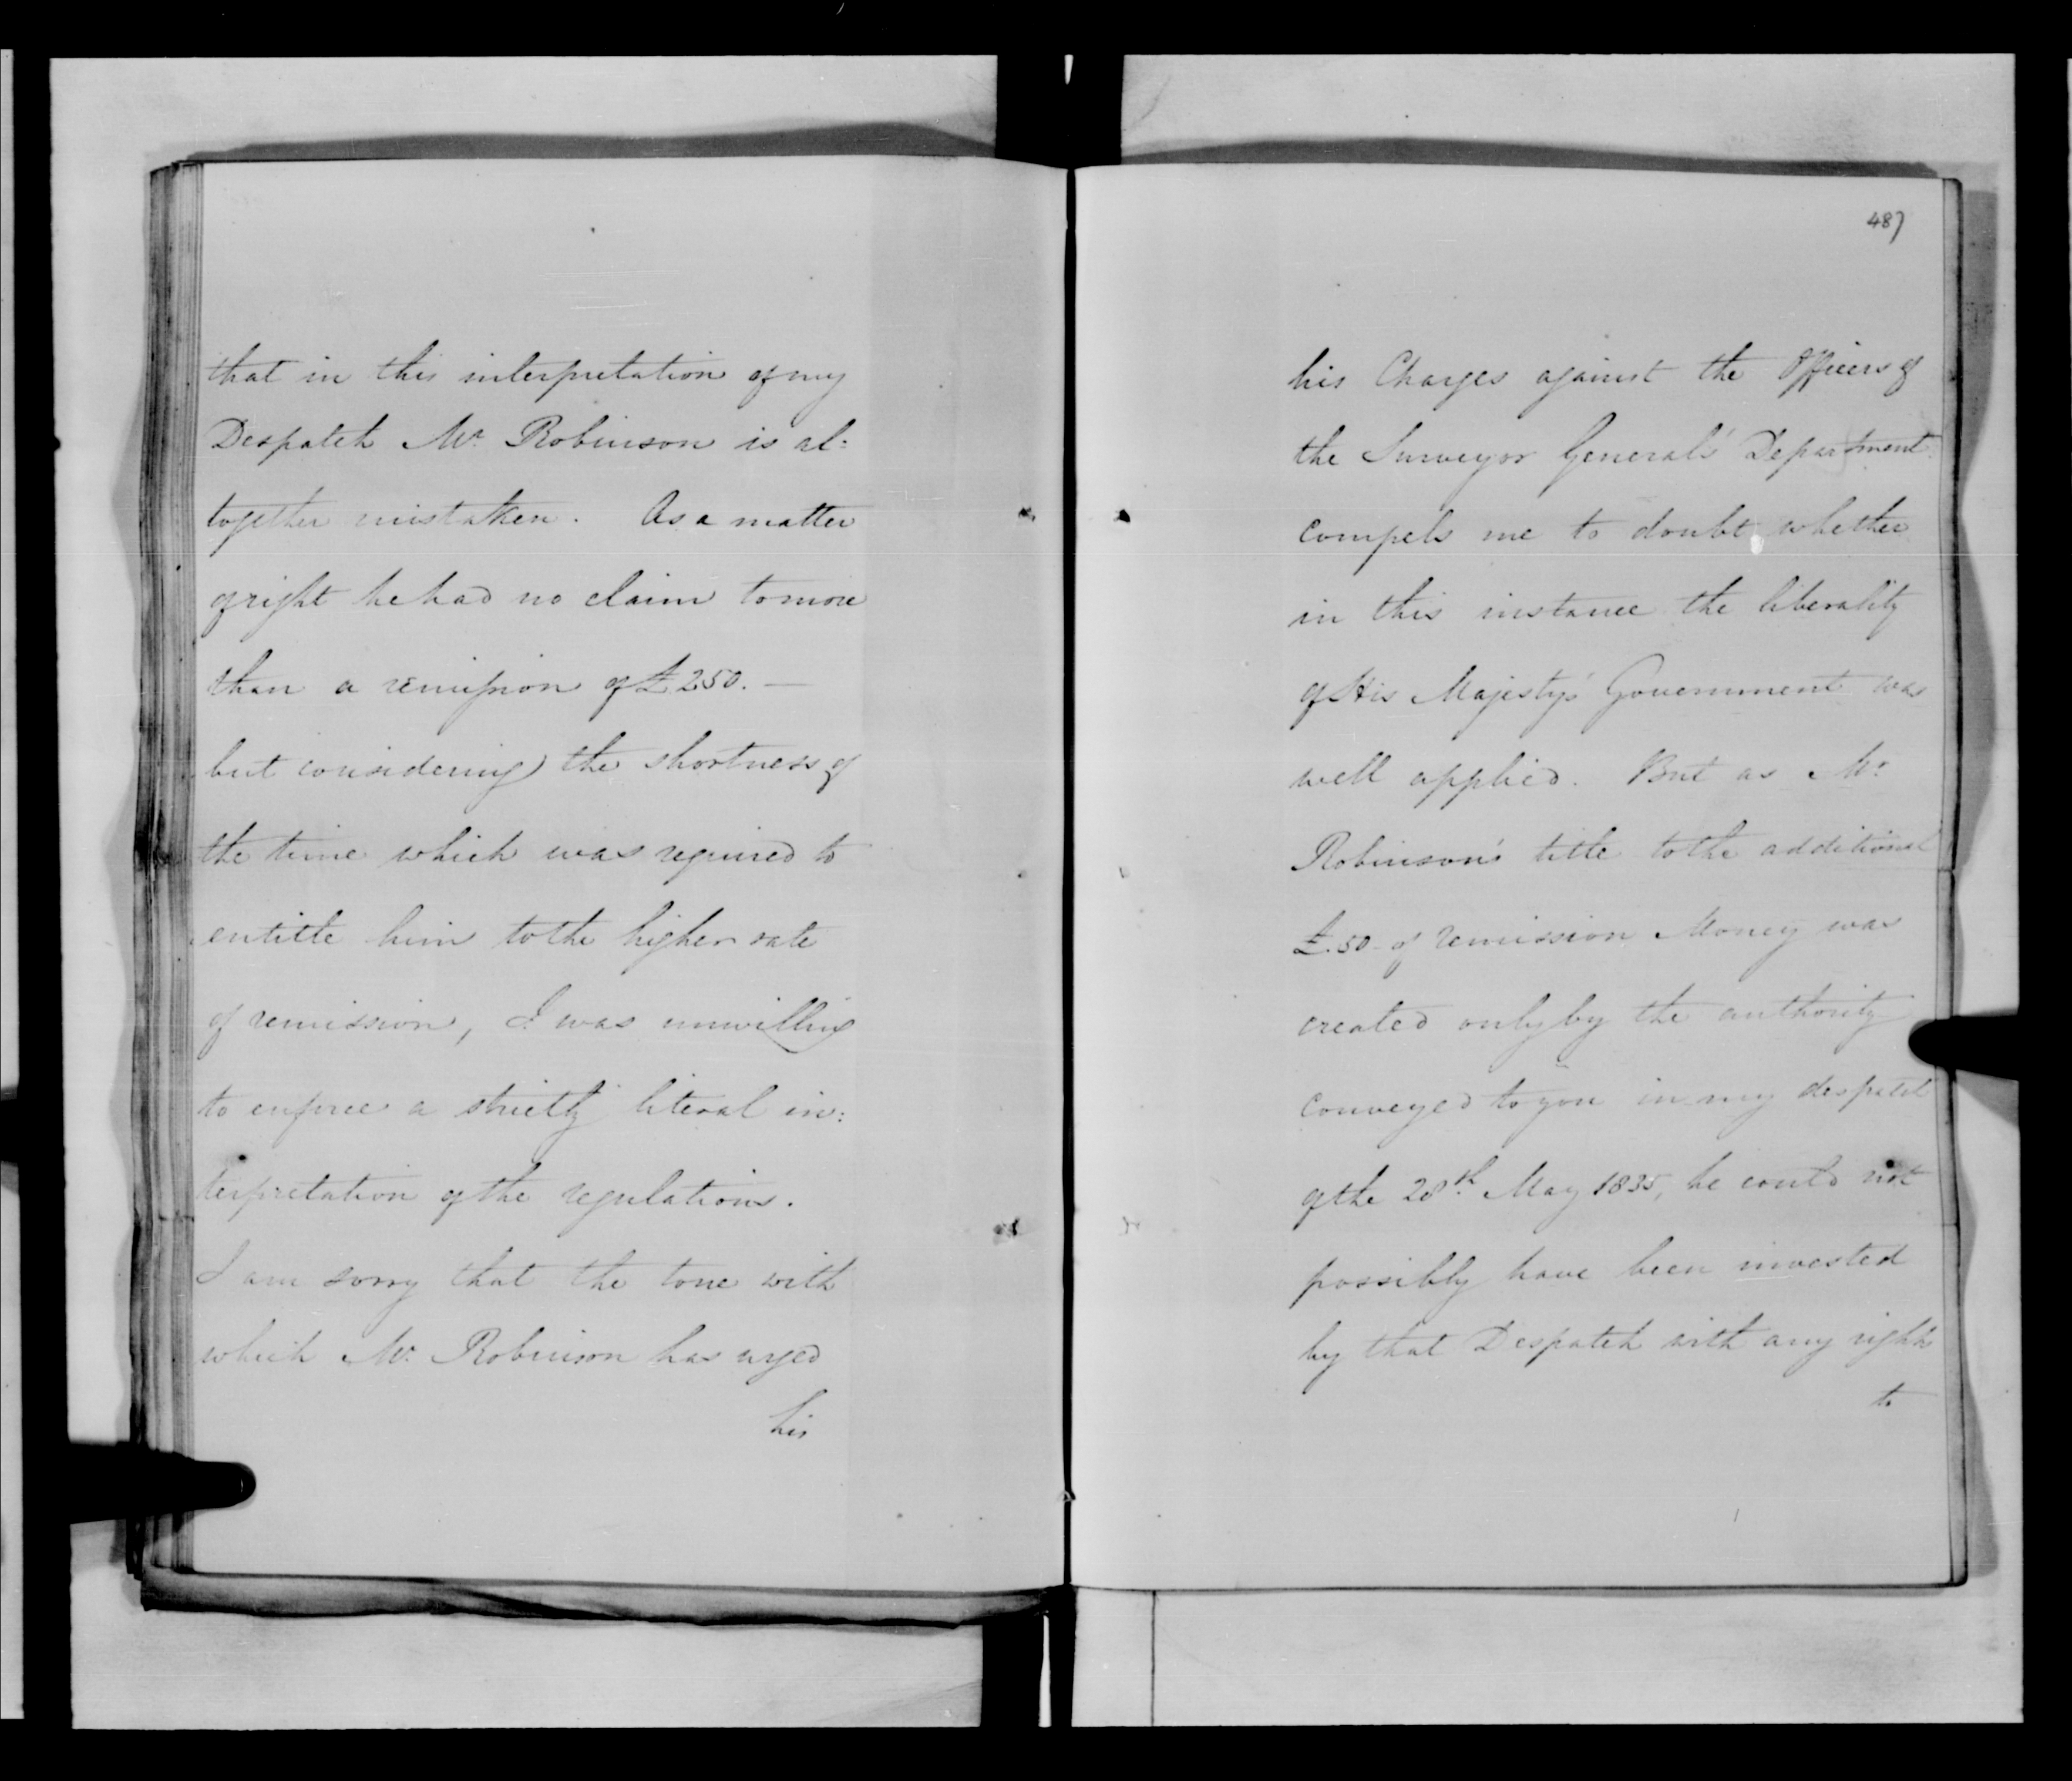 that in this interpretation of my
Despatch Mr. Robinson is al:
together mistaken. As a matter
of right he had no claim to more
than a remission of £250. —
but considering the shortness of
the time which was required to
entitle him to the higher rate
of remission, I was unwilling
to enforce a strictly literal in:
terpretation of the regulations.
I am sorry that the tone with
which Mr. Robinson has urged
his
487
his Charges against the Officers of
the Surveyor General's Department
compels me to doubt whether
in this instance the liberality
of His Majesty's Government was
well applied. But as Mr.
Robinson's title to the additional
£.50 - of remission Money was
created only by the authority
conveyed to you in my despatch
of the 28th May 1835, he could not
possibly have been invested
by that Despatch with any right
to